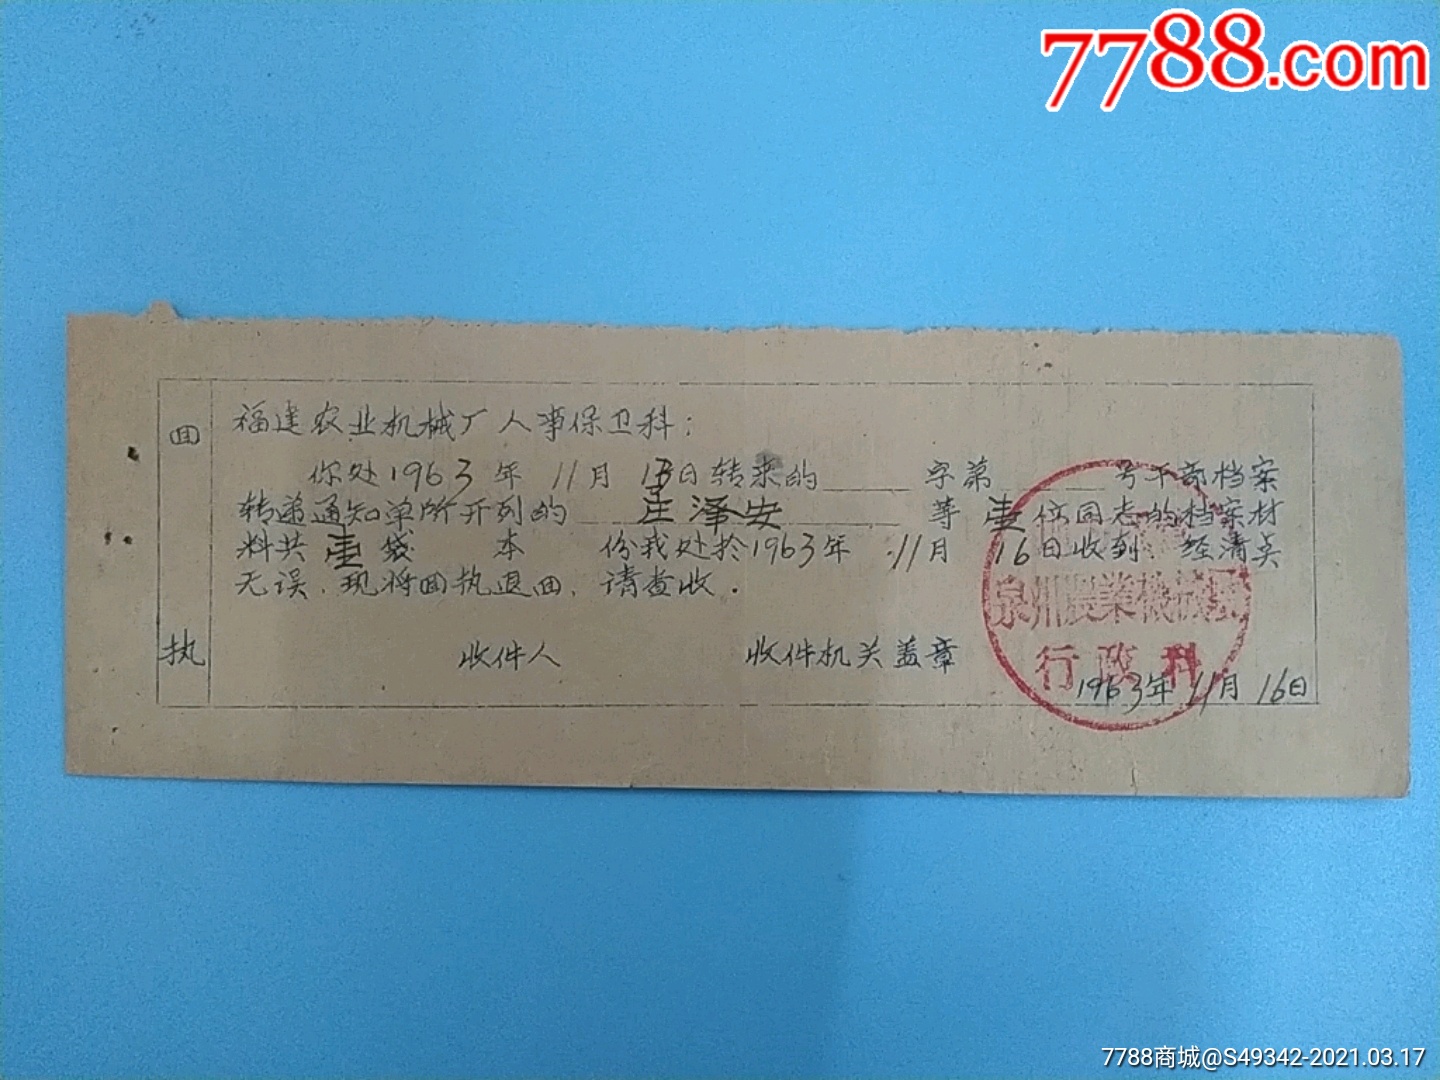 7788.com
回执
福建农业机械厂人事保卫科:
你处1963年11月13日转来的 字第 号干部档案
转递通知单所开列的 庄泽安 等壹位同志的档案材
料共壹袋 本 份我处於1963年11月16日收到. 经清点
无误. 现将回执退回. 请查收.
收件人 收件机关盖章
泉州農業機械
行政科
1963年11月16日
7788商城@S49342-2021.03.17